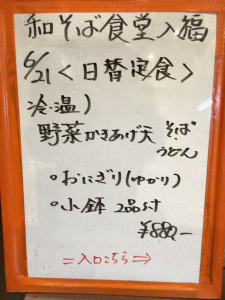 和そば食堂入福
6/21<日替定食>
冷・温)
野菜かきあげ天 そば
うどん
○おにぎり(ゆかり)
○小鉢 2品付
¥880-
=入口こちら⇒